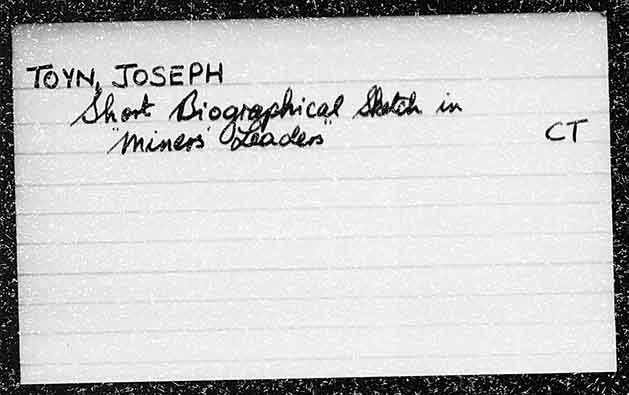 TOYN, JOSEPH
Short Biographical Sketch in
"Miners' Leaders"
CT